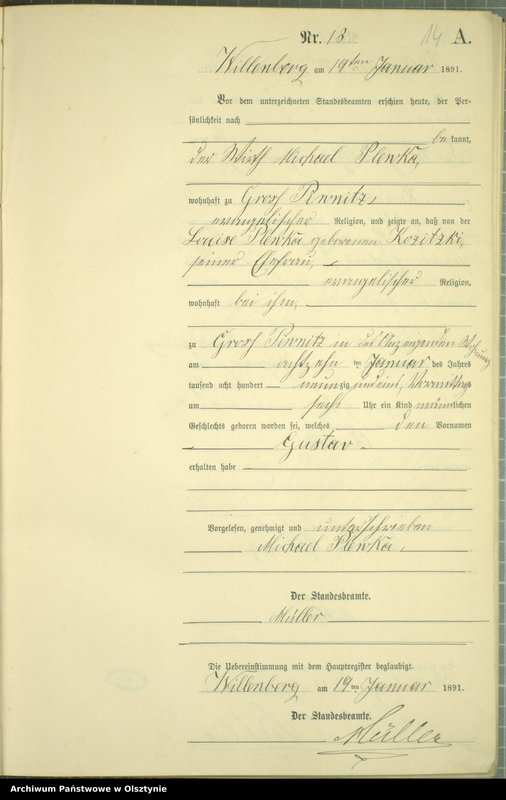 14
Nr. 13 A.
Willenberg am 19ten Januar 1891.
Vor dem unterzeichneten Standesbeamten erschien heute, der Per-
sönlichkeit nach
be kannt,
der Wirth Michael Plewka,
wohnhaft zu Groß Piwnitz,
evangelischer Religion, und zeigte an, daß von der
Louise Plewka geborenen Kozitzki,
seiner Ehefrau,
evangelischer Religion,
wohnhaft bei ihm,
zu Groß Piwnitz in des Anzeigenden Wohnung
am achtzehn ten Januar des Jahres
tausend acht hundert neunzig und eins, Vormittags
um sechs Uhr ein Kind männlichen
Geschlechts geboren worden sei, welches den Vornamen
Gustav
erhalten habe
Vorgelesen, genehmigt und unterschrieben
Michael Plewka.
Der Standesbeamte.
Müller
Die Uebereinstimmung mit dem Hauptregister beglaubigt.
Willenberg am 19ten Januar 1891.
Der Standesbeamte.
Müller
Archiwum Państwowe w Olsztynie